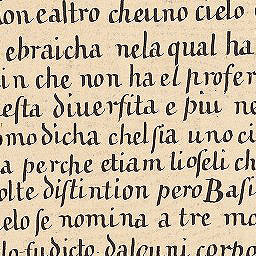 non e altro che uno cielo
ebraicha nela qual ha
in che non ha el profer
esta diuersita e piu ne
omo dicha chel sia uno ci
a perche etiam li oseli ch
olte distintion pero Basi
elo se nomina a tre mo
lo fu dicto dalcuni corpo